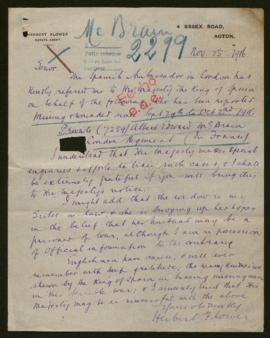 Mc Brain
2299
HERBERT FLOWER
ESTATE AGENT.
4 ESSEX ROAD,
ACTON.
Nov. 25th 1916
Señor
The Spanish Ambassador in London has
kindly referred me to His Majesty the King of Spain
on behalf of the following who has been reported
Missing wounded
Private (7289) Albert Edward Mc Brain
London Regiment (In France)
I understand that His Majesty makes special
enquiries & efforts to trace such cases, & I shall
be extremely grateful if you will bring this
to His Majesty's notice.
I might add that the widow is my
Sister in law & she is buoying up her hopes
in the belief that her husband may be a
prisoner of war, although I am in possession
of Official information to the contrary.
Englishmen have cause, & will ever
remember with deep gratitude, the many kindnesses
shown by the King of Spain in tracing missing men
in this terrible war; & I sincerely trust that His
Majesty may be as successful with the above
Yours obediently
Herbert Flower